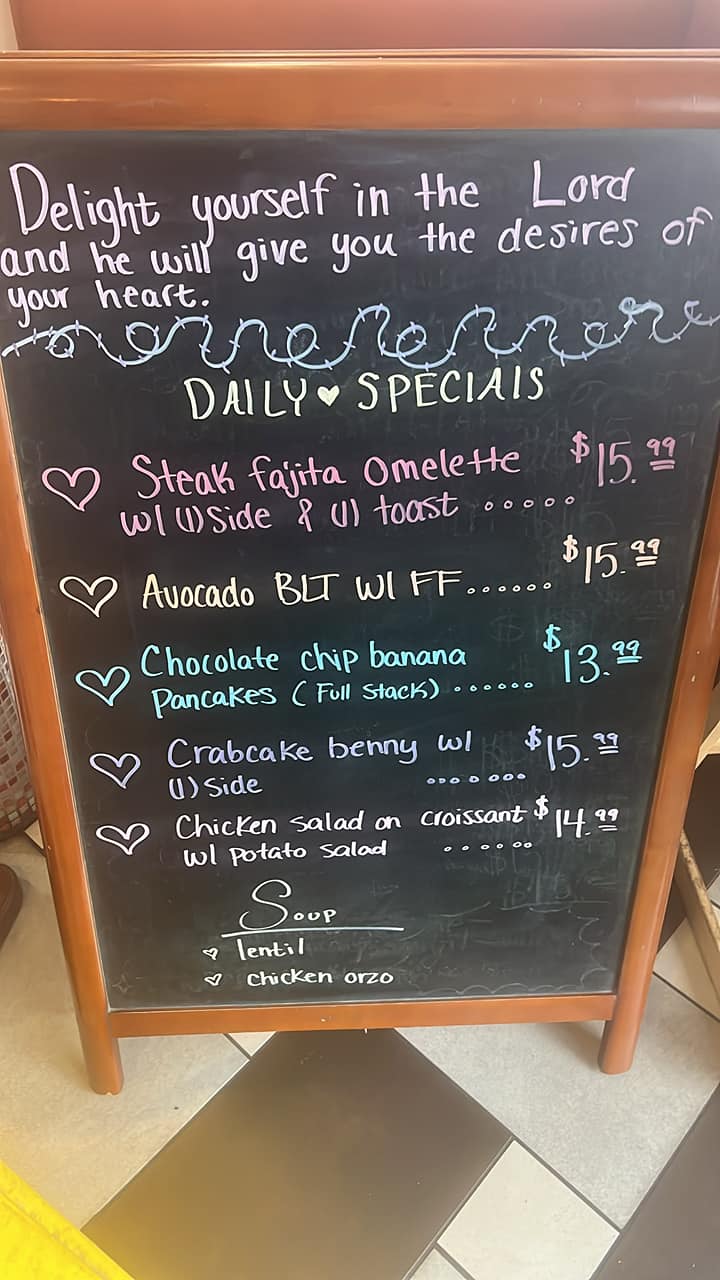 Delight yourself in the Lord
and he will give you the desires of
your heart.
DAILY ♥ SPECIALS
♡ Steak fajita omelette $15.99
w/ (1) Side & (1) toast .....
♡ Avocado BLT w/ FF...... $15.99
♡ Chocolate chip banana $13.99
Pancakes (Full Stack) ......
♡ Crabcake benny w/ $15.99
(1) Side .......
♡ Chicken Salad on croissant $14.99
w/ Potato Salad ......
Soup
♡ lentil
♡ chicken orzo